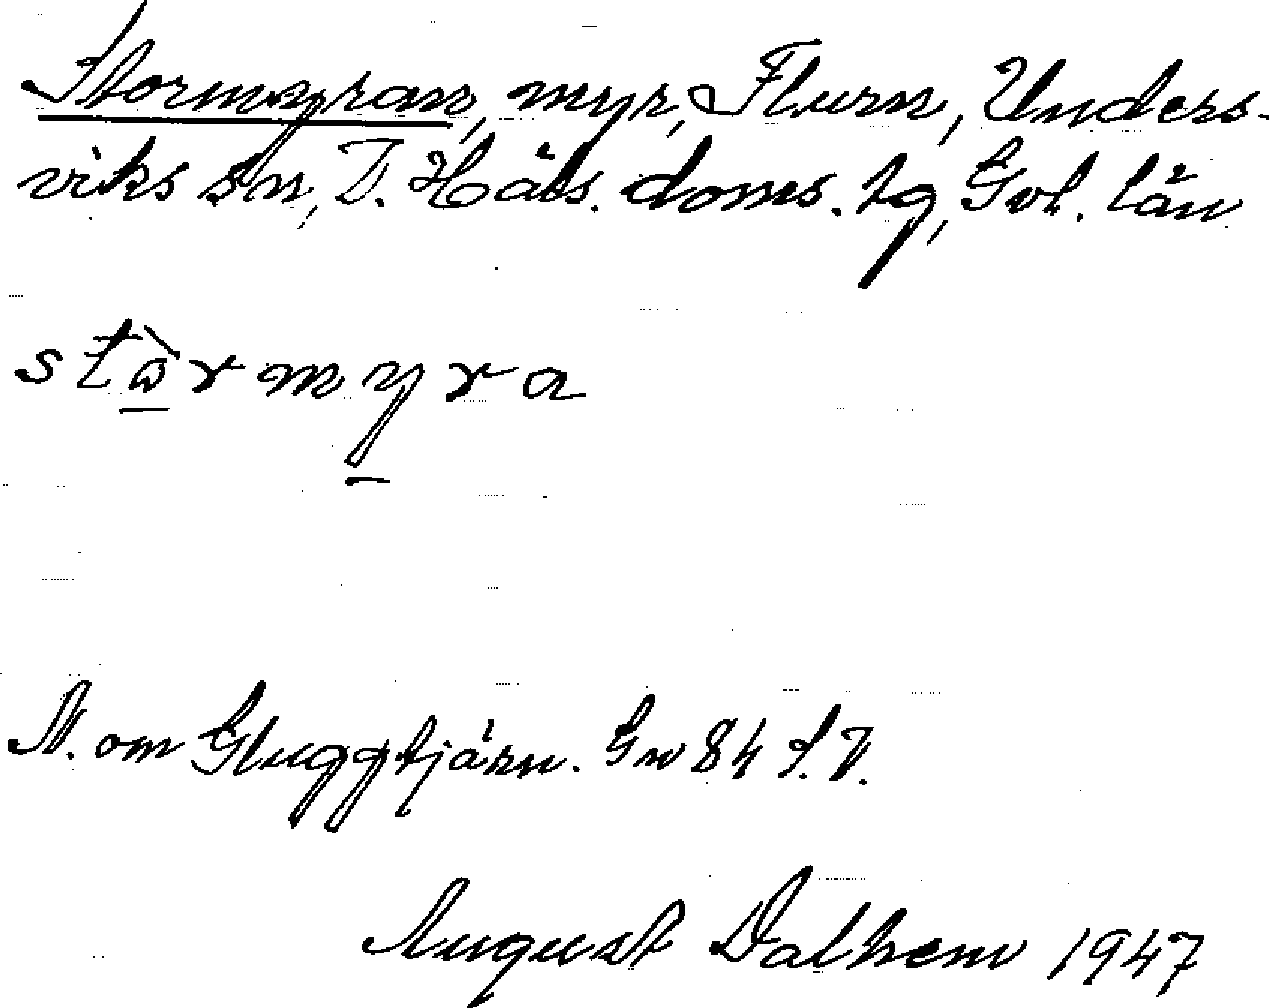 Stormyran, myr, Flurn, Unders-
viks sn, V. Häls. doms. tg, Gvl. län
stårmyra
N. om Gluggtjärn. Gw 84 S.V.
August Dalhem 1947